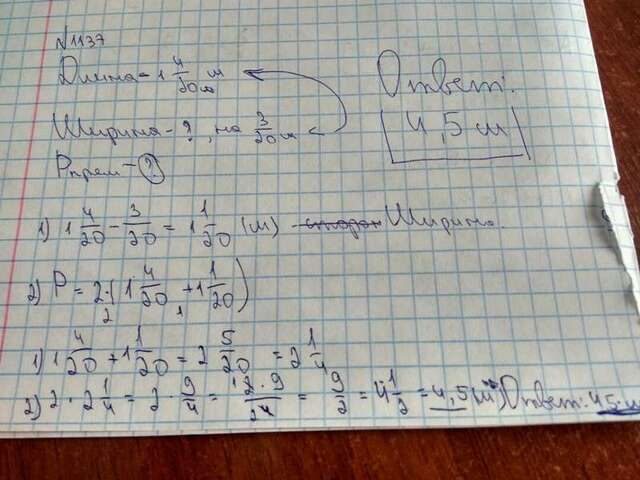 N 1137
Длина - 1 4/20 м
Ширина - ?, на 3/20 м <
Pпрям - ?
Ответ:
4,5 м
1) 1 4/20 - 3/20 = 1 1/20 (м) - Ширина.
2) P = 2·(1 4/20 + 1 1/20)
1) 1 4/20 + 1 1/20 = 2 5/20 = 2 1/4
2) 2 · 2 1/4 = 2 · 9/4 = 2·9/4 = 9/2 = 4 1/2 = 4,5 (м) Ответ: 4,5 м